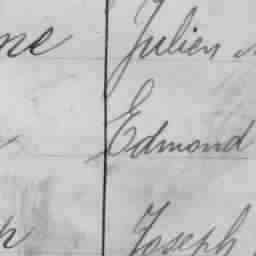 ne Julien
Edmond
Joseph